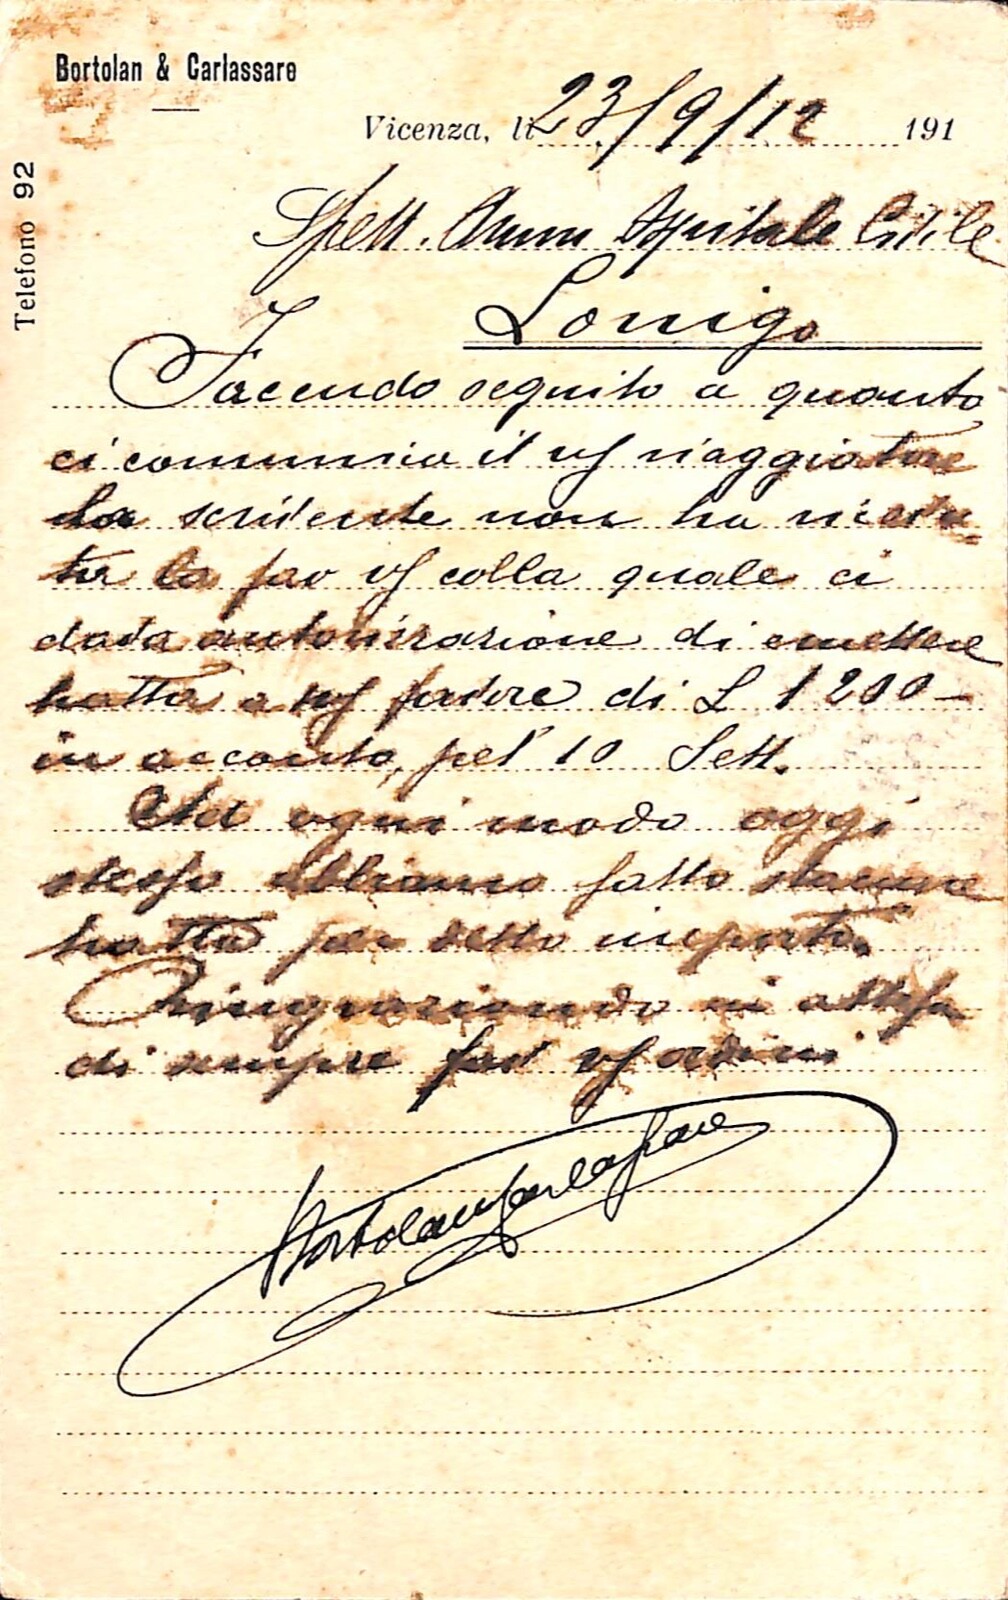 Bortolan & Carlassare
Telefono 92
Vicenza, li 23/9/12 191
Spett. Amm Ospitale Civile
Lonigo
Facendo seguito a quanto
ci comunica il vs viaggiatore
la scrivente non ha ricevu-
ta la fav vs colla quale ci
dava autorizzazione di emettere
tratta a vs favore di L 1200 -
in acconto, pel 10 Sett.
Ad ogni modo oggi
stesso abbiamo fatto
tratta per detto importo.
Ringraziando in attesa
di sempre fav vs ordini
Bortolan Carlassare